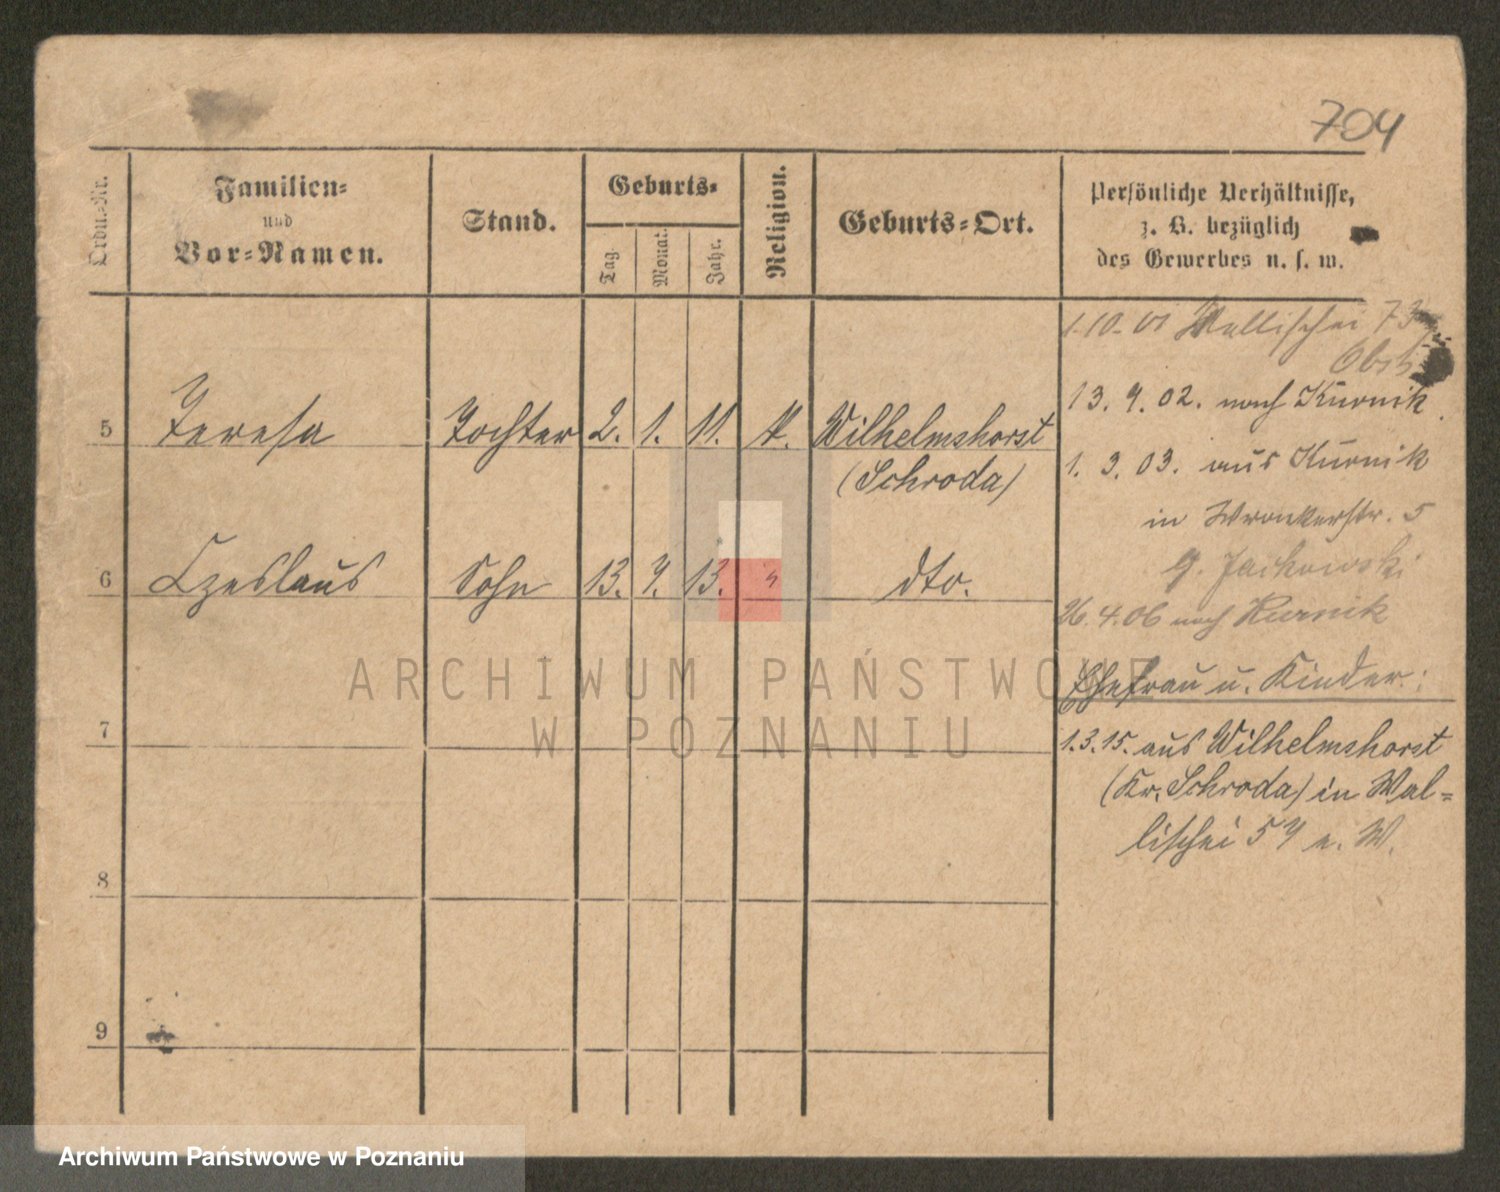 704
Ordn.-Nr.
Familien-
und
Vor-Namen.
Stand.
Geburts-
Tag
Monat.
Jahr.
Religion.
Geburts-Ort.
Persönliche Verhältnisse,
z. B. bezüglich
des Gewerbes u. s. w.
1.10.01 Wallischei 73
13. 9. 02. nach Kurnik
5 Teresa Tochter 2. 1. 11. k. Wilhelmshorst
(Schroda)
1. 3. 03. aus Kurnik
in Wronkerstr. 5
6 Czeslaus Sohn 13. 7. 13. " dto.
Jackowski
26.4.06 nach Kurnik
Ehefrau u. Kinder:
7
1.3.15. aus Wilhelmshorst
(Kr. Schroda) in Wal-
lischei 57 e. W.
8
9
ARCHIWUM PAŃSTWOWE
W POZNANIU
Archiwum Państwowe w Poznaniu